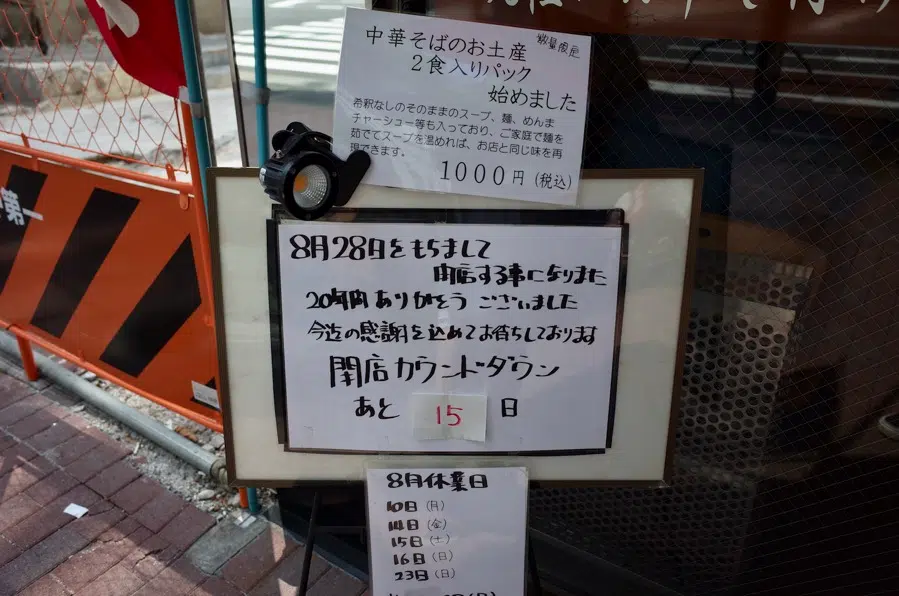 中華そばのお土産
数量限定
2食入りパック
始めました
希釈なしのそのままのスープ、麺、めんま
チャーシュー等も入っており、ご家庭で麺を
茹でてスープを温めれば、お店と同じ味を再
現できます。
1000円(税込)
第一
8月28日をもちまして
閉店する事になりました
20年間ありがとうございました
今迄の感謝を込めてお待ちしております
閉店カウントダウン
あと 15 日
8月休業日
10日(月)
14日(金)
15日(土)
16日(日)
23日(日)